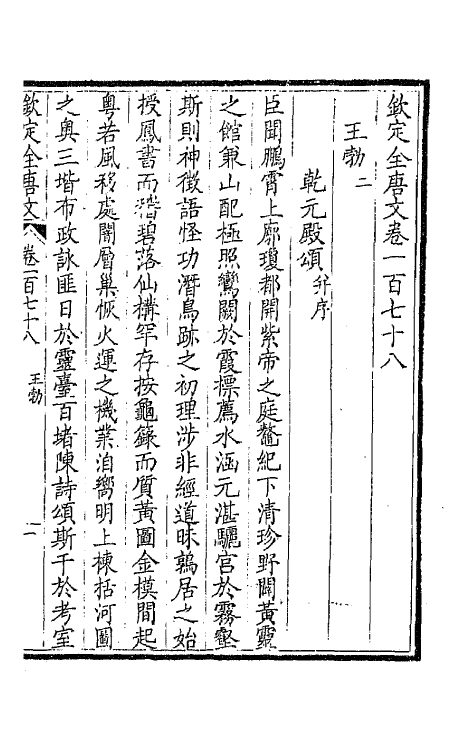 欽定全唐文卷一百七十八
王勃二
乾元殿頌并序
臣聞鵬霄上廓瓊都開紫帝之庭鼇紀下清珍野闢黃靈
之館東山配極照鸞闕於霞標薦水涵元湛驪宮於霧壑
斯則神徵語怪功潛鳥跡之初理涉非經道昧鶉居之始
授鳳書而稽碧落仙構罕存按龜籙而質黃圖金模間起
粵若風移處闇層巢恢火運之機業洎嚮明上棟括河圖
之奧三堦布政詠匪日於靈臺百堵陳詩頌斯干於考室
欽定全唐文 卷一百七十八 王勃 一